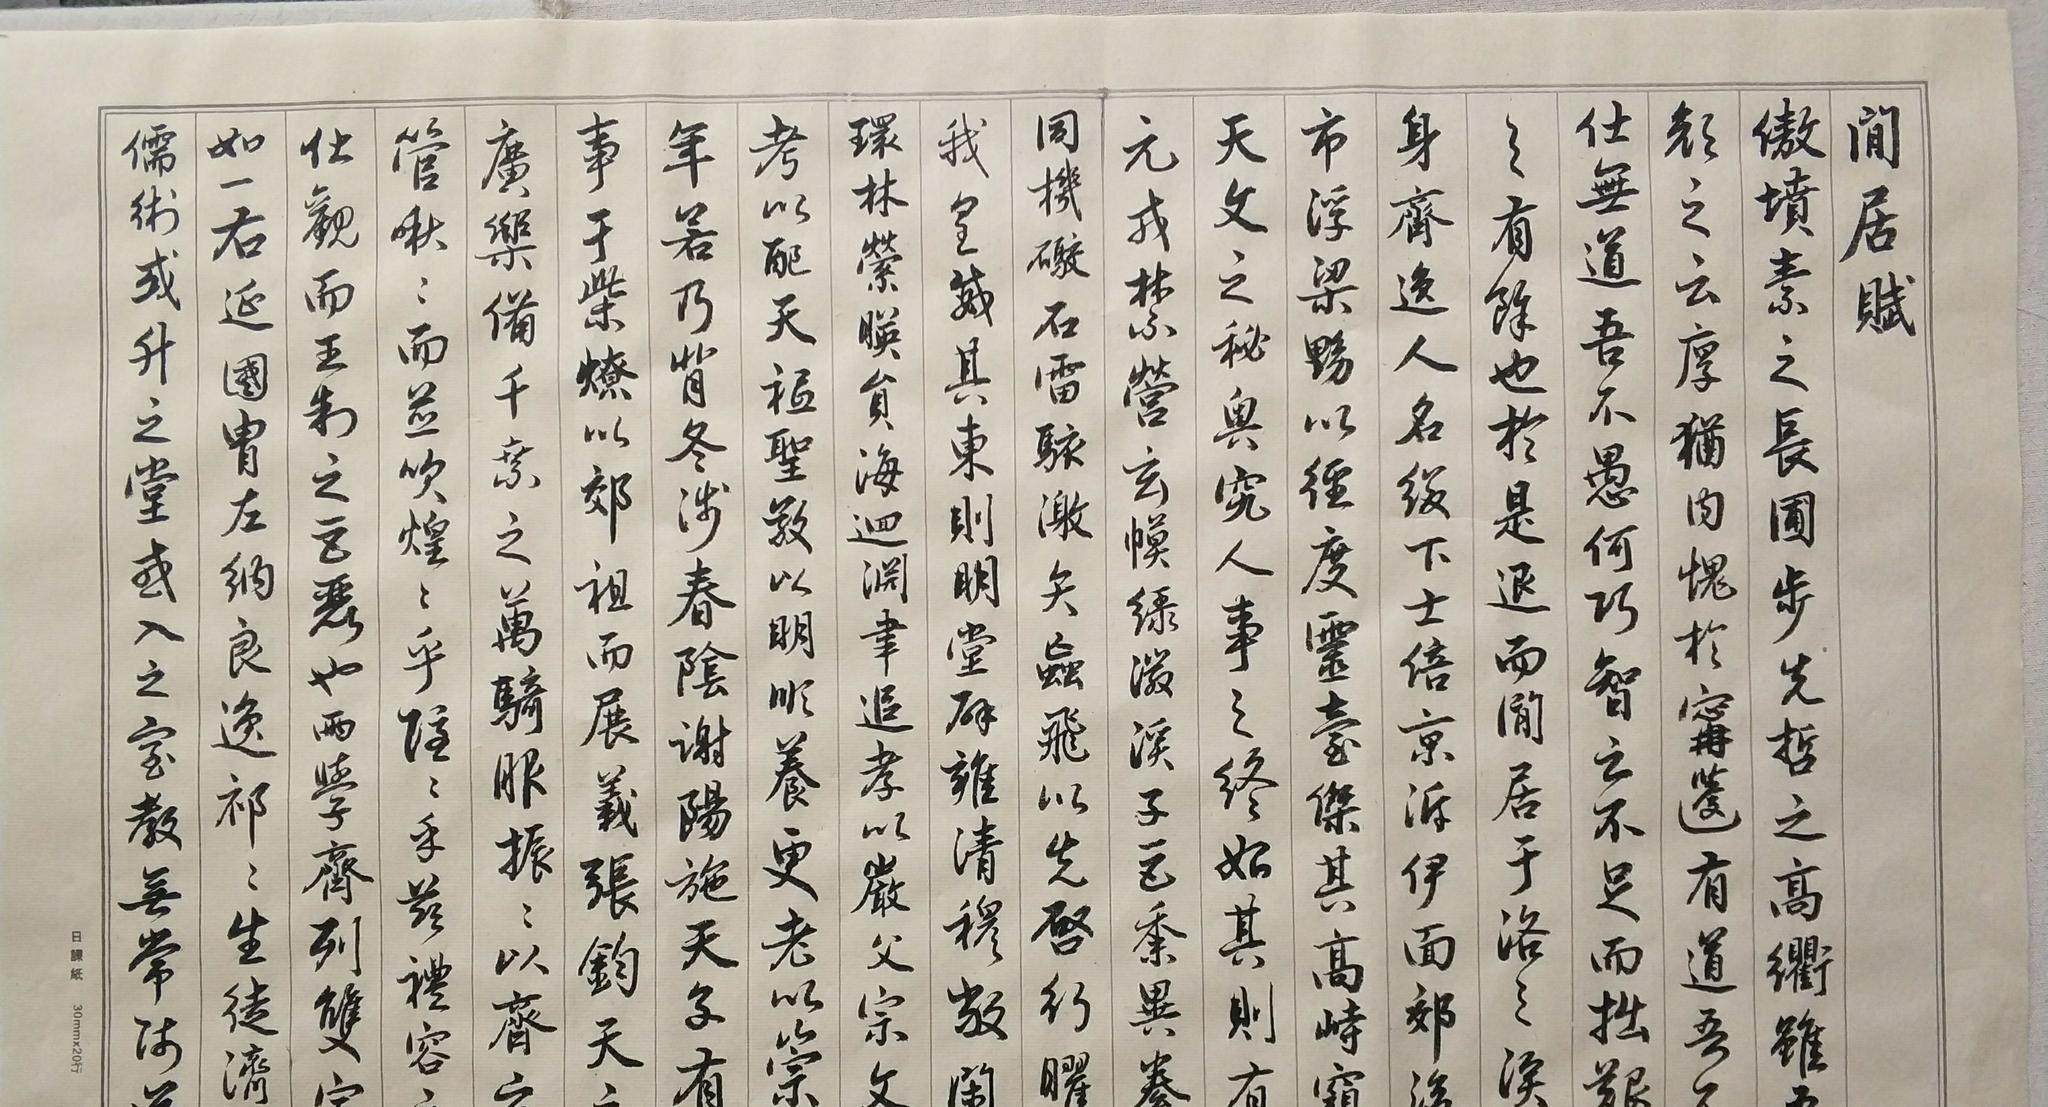 閒居賦
傲墳素之長圃步先哲之高衢雖吾
顏之云厚猶內愧於甯蘧有道吾不
仕無道吾不愚何巧智之不足而拙艱
之有餘也於是退而閒居于洛之涘
身齊逸人名綴下士倍京泝伊面郊後
市浮梁黝以徑度靈臺傑其高峙窺
天文之秘奧究人事之終始其則有
元戎禁營玄幙綠徽溪子巨黍異絭
同機礮石雷駭激矢蝱飛以先啓行曜
我皇威其東則明堂辟雍清穆敞閑
環林縈暎員海迴淵聿追孝以嚴父宗文
考以配天秪聖敬以明順養更老以崇
年若乃背冬涉春陰謝陽施天子有
事于柴燎以郊祖而展義張鈞天之
廣樂備千乘之萬騎服振〻以齊玄
管啾〻而並吹煌〻乎隱〻乎茲禮容之
壯觀而王制之巨麗也兩學齊列雙宇
如一右延國胄左納良逸祁〻生徒濟
儒術或升之堂或入之室教無常師道
日課紙 30mmx20行